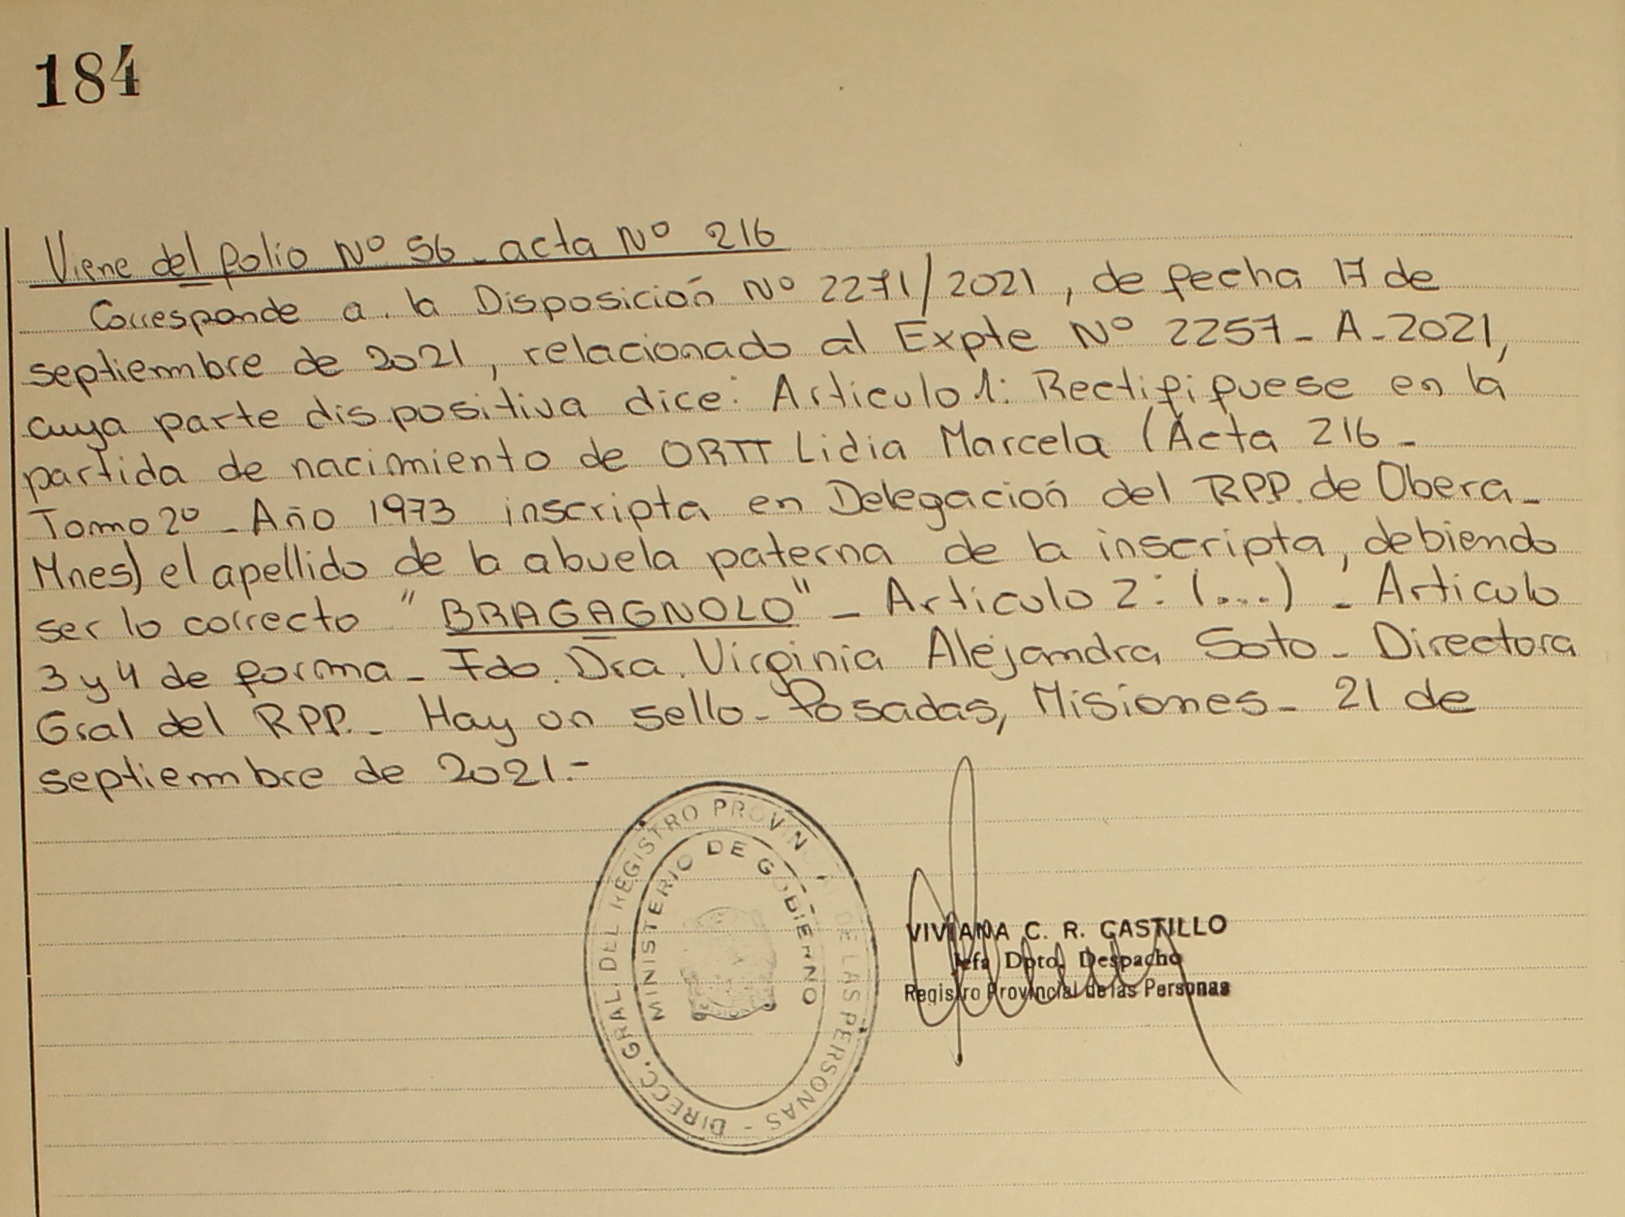 184
Viene del folio Nº 56 - acta Nº 216
Corresponde a la Disposición Nº 2271/2021, de fecha 17 de
septiembre de 2021, relacionado al Expte Nº 2257 - A - 2021,
cuya parte dispositiva dice: Articulo 1: Rectifiquese en la
partida de nacimiento de ORTT Lidia Marcela (Acta 216 -
Tomo 2º - Año 1973 inscripta en Delegación del RPP. de Obera -
Mnes) el apellido de la abuela paterna de la inscripta, debiendo
ser lo correcto "BRAGAGNOLO" - Articulo 2: (...) - Articulo
3 y 4 de forma - Fdo. Dra. Virginia Alejandra Soto - Directora
Gral del RPP. - Hay un sello - Posadas, Misiones - 21 de
septiembre de 2021.-
DIRECC. GRAL. DEL REGISTRO PROVINCIAL DE LAS PERSONAS -
MINISTERIO DE GOBIERNO
VIVIANA C. R. CASTILLO
Jefa Dpto. Despacho
Registro Provincial de las Personas